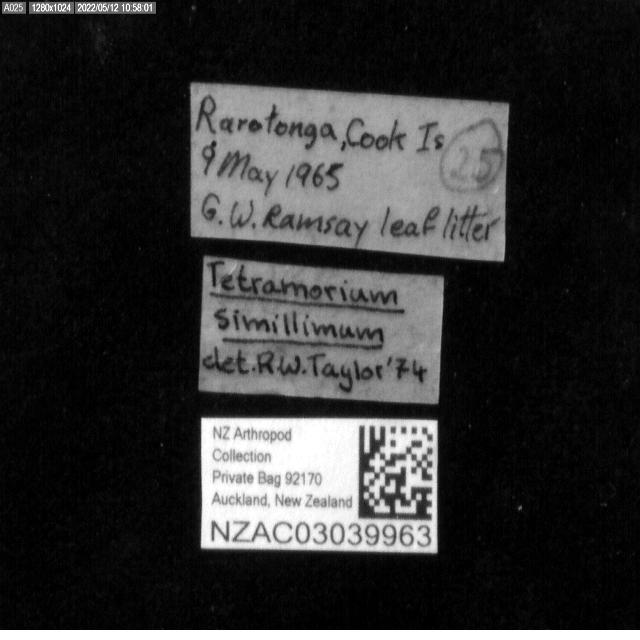 A025 1280x1024 2022/05/12 10:58:01
Rarotonga, Cook Is
9 May 1965
25
G.W. Ramsay leaf litter
Tetramorium
simillimum
det. R.W. Taylor '74
NZ Arthropod
Collection
Private Bag 92170
Auckland, New Zealand
NZAC03039963